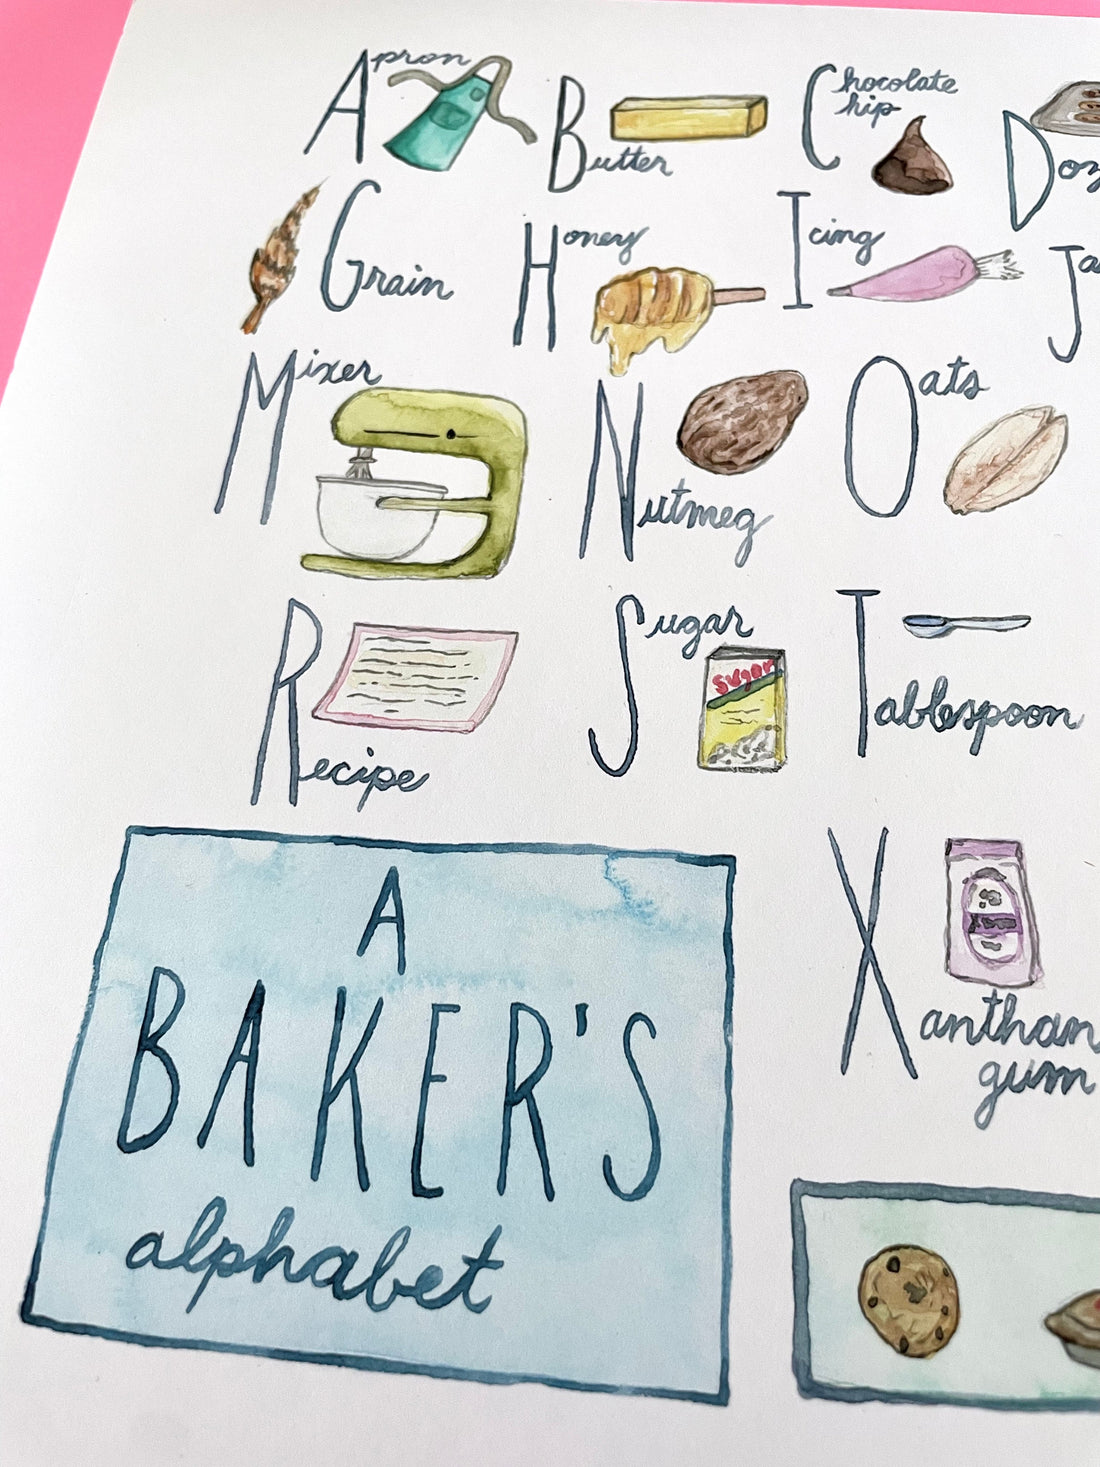 Apron
Butter
Chocolate
chip
Doz
Grain
Honey
Icing
Ja
Mixer
Nutmeg
Oats
Recipe
Sugar
Sugar
Tablespoon
Xanthan
gum
A
BAKER'S
alphabet